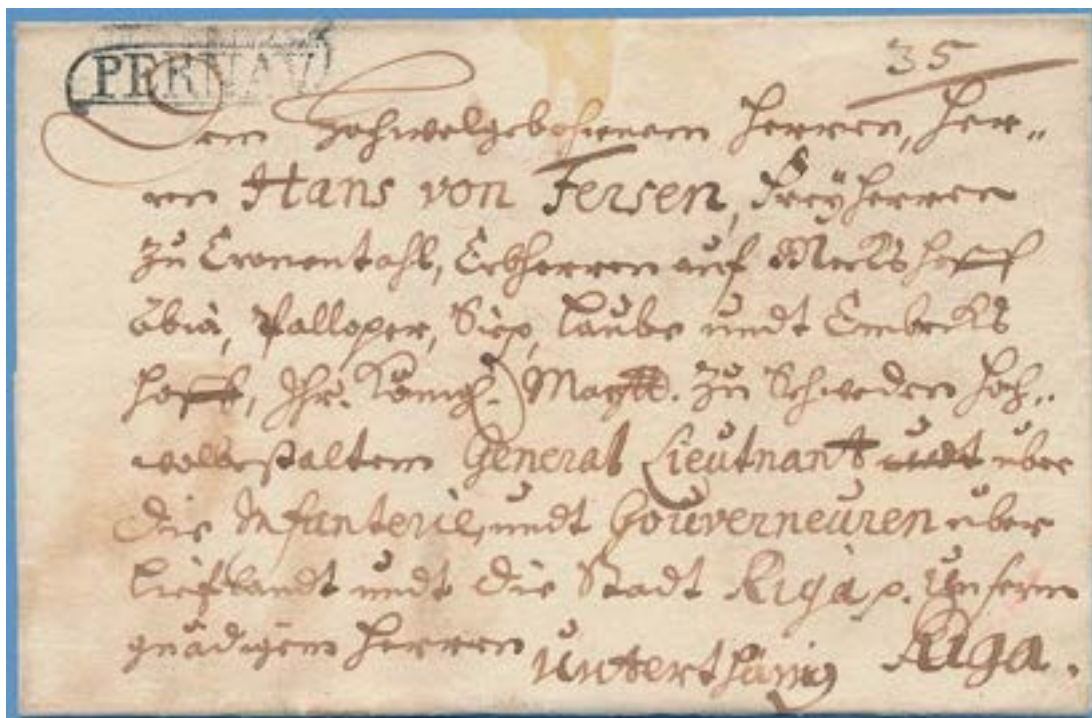 PERNAV
35
Dem Hochwolgebohrnem Herren, Her„
ren Hans von Fersen, Freÿherren
zu Cronentahl, Erbherren auf
Abia, Palloper, Siep, Laube undt Embecks
hoff, Ihr. Königl. Maytt. zu Schweden hoh„
wolbestaltem General Lieutnant über
die Infanterie, undt Gouverneuren über
Lieflandt undt die Stadt Riga p. Unserm
gnädigem Herren
Unterthänig
Riga.